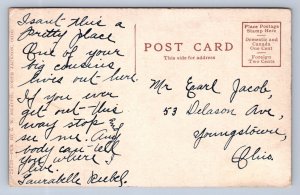 Isant this a
Pretty place
One of your
big cousins
lives out here.
If you ever
get out this
way stop &
see me. Any
body can tell
you where I
live.
POST CARD
This side for address
Place Postage
Stamp Here
Domestic and
Canada
One Cent
Foreign
Two Cents
Mr Earl Jacob,
53 Delason Ave,
Youngstown,
Ohio.